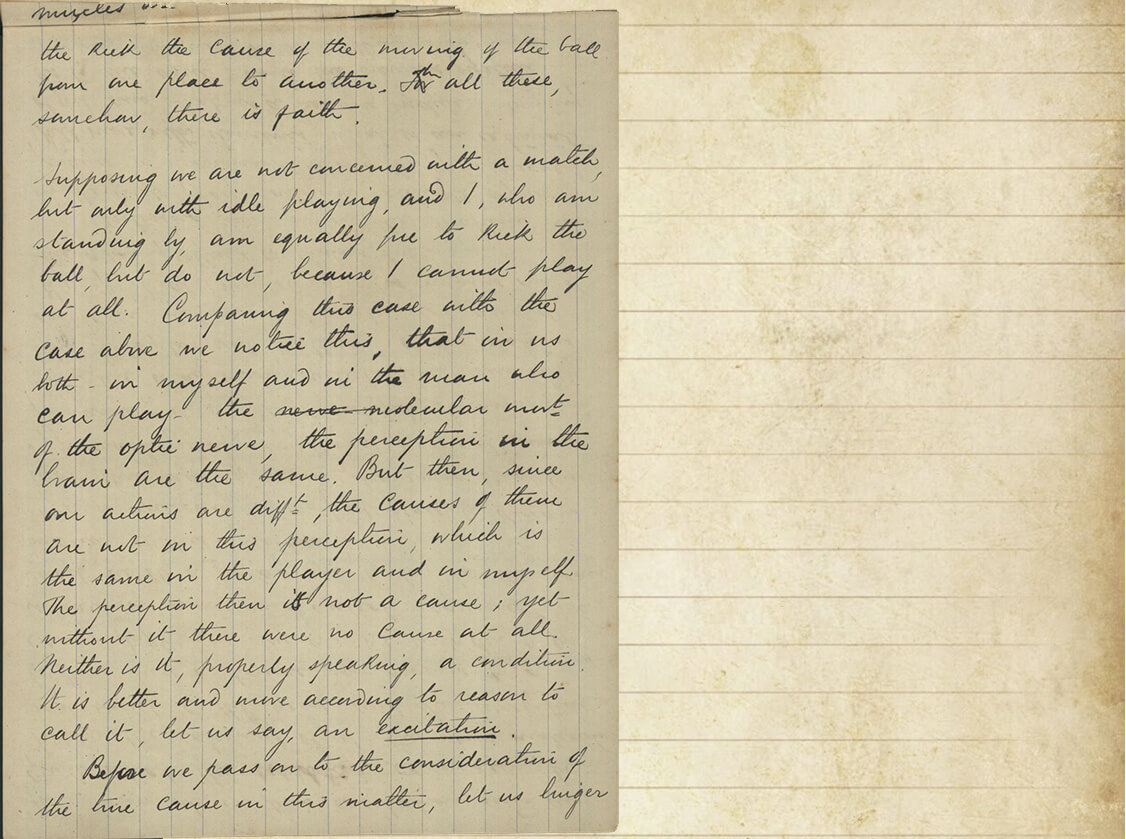 muscles
the kick the cause of the moving of the ball
from one place to another. In all these,
somehow, there is faith.
Supposing we are not concerned with a match,
but only with idle playing, and I, who am
standing by, am equally free to kick the
ball, but do not, because I cannot play
at all. Comparing this case with the
case above we notice this, that in us
both - in myself and in the man who
can play - the nerve molecular movt
of the optic nerve, the perception in the
brain are the same. But then, since
our actions are difft, the causes of them
are not in this perception, which is
the same in the player and in myself
The perception then is not a cause; yet
without it there were no cause at all.
Neither is it, properly speaking, a condition.
It is better and more according to reason to
call it, let us say, an excitation.
Before we pass on to the consideration of
the true cause in this matter, let us linger